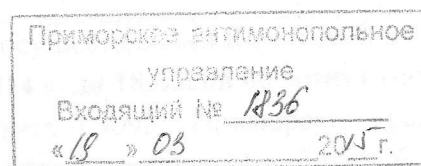 Приморское антимонопольное
управление
Входящий № 1836
«19» 03 2015 г.